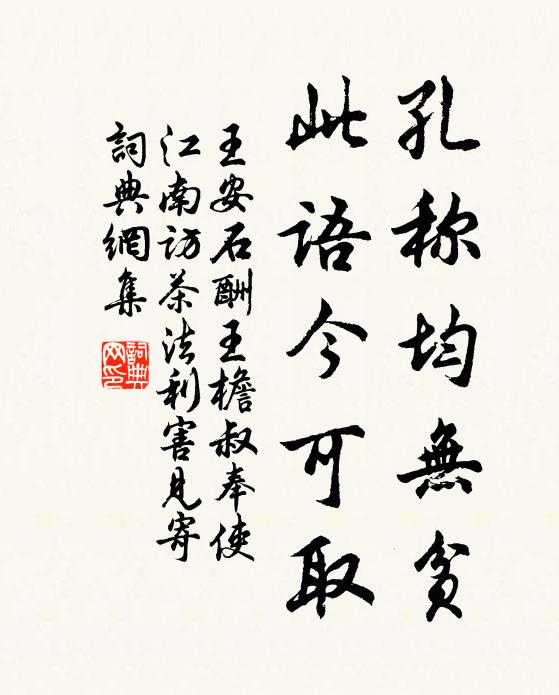 孔称均無貧
此語今可取
王安石酬王檐叔奉使
江南访茶法利害見寄
詞典網集
詞典
网印